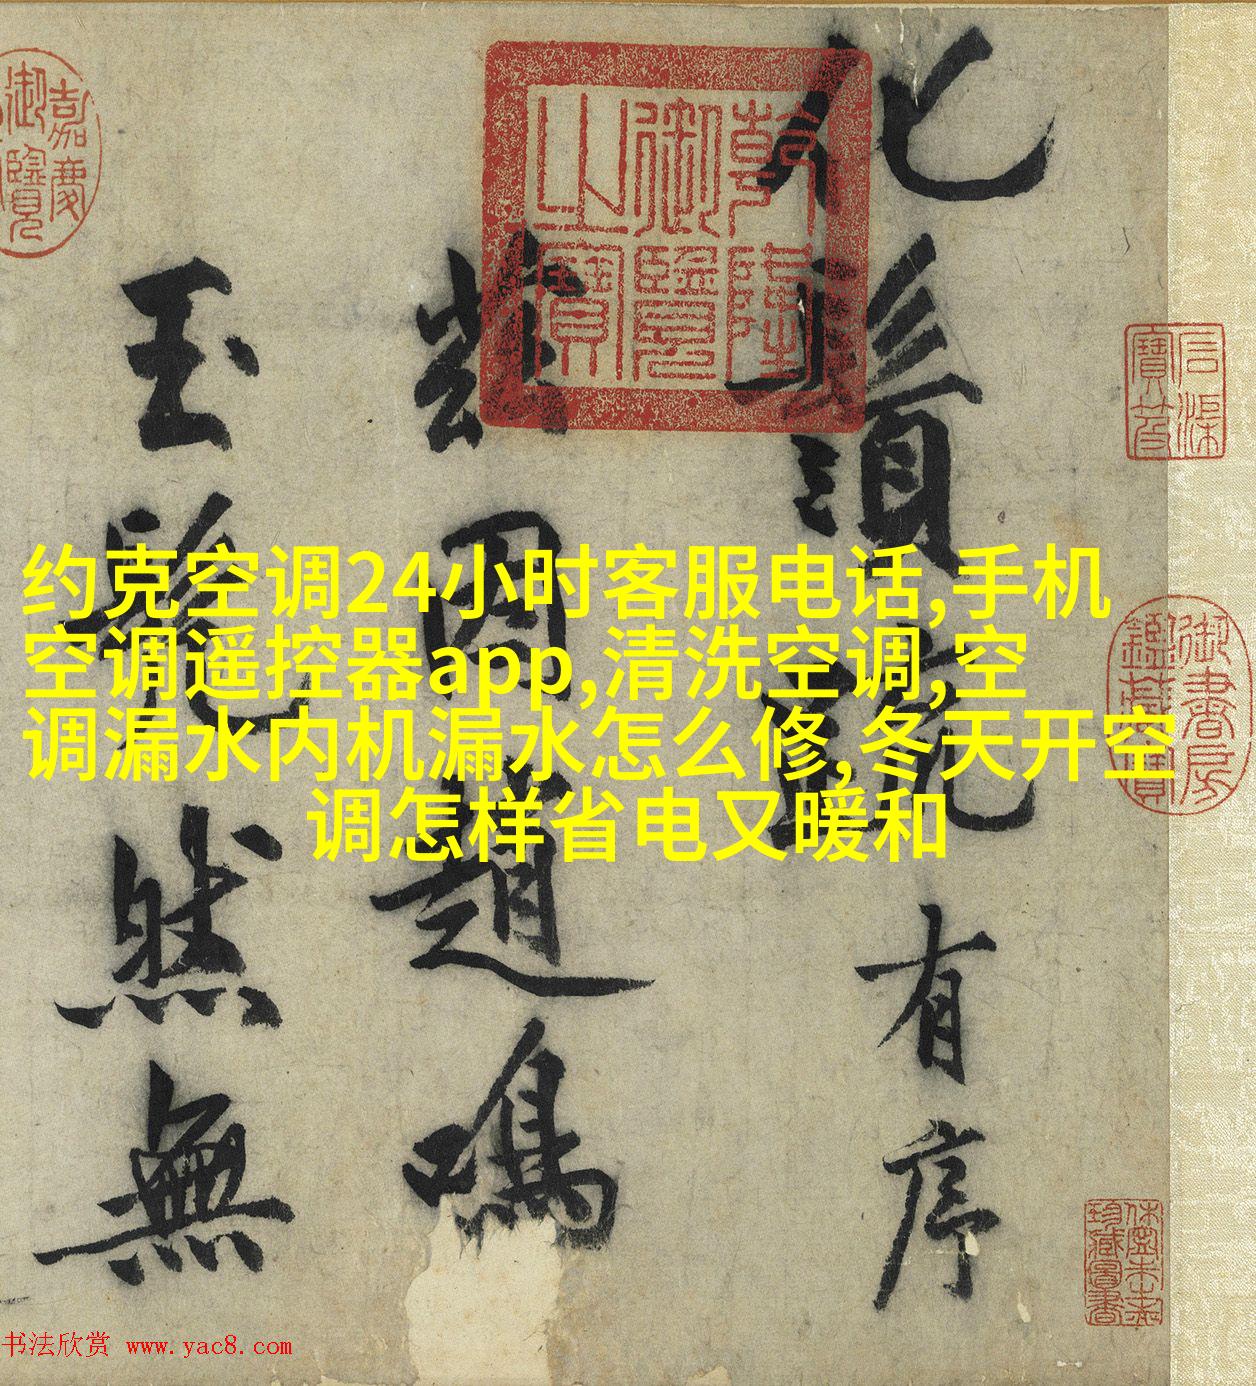 约克空调24小时客服电话,手机
空调遥控器app,清洗空调,空
调漏水内机漏水怎么修,冬天开空
调怎样省电又暖和
化鬚疏有序
兹因趙鳴
玉髡然無
乾隆
御覽
之寶
嘉慶
御覽
石渠
寶笈
御書房
鑑藏寶
珍藏圖書
书法欣赏 www.yac8.com